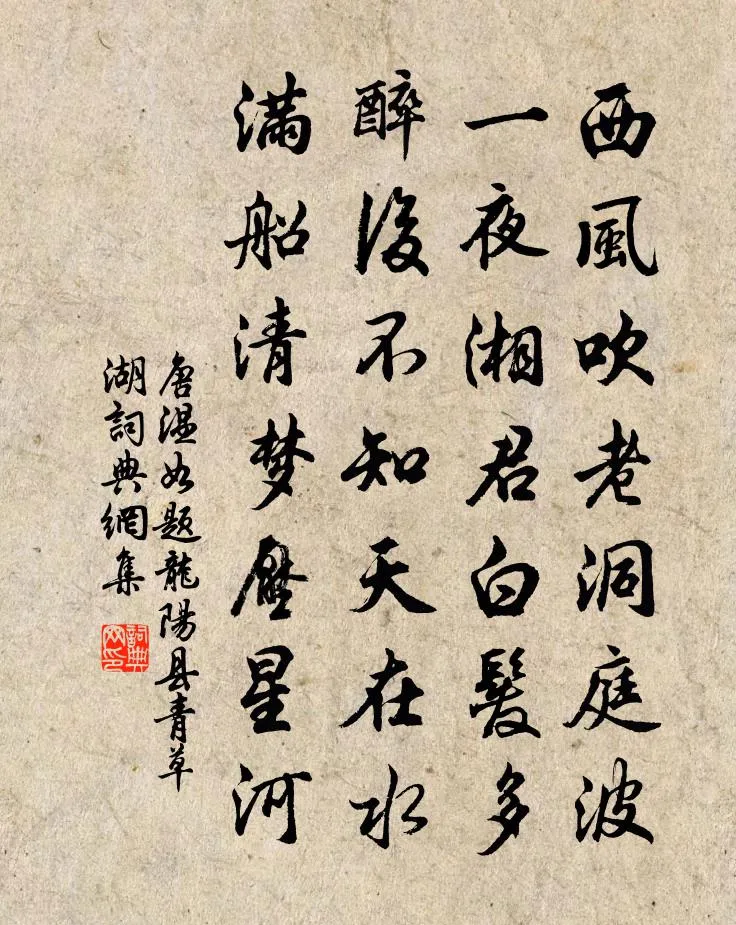 西風吹老洞庭波
一夜湘君白髮多
醉後不知天在水
滿船清梦壓星河
唐溫如题龍陽县青草
湖詞典網集
詞典網印